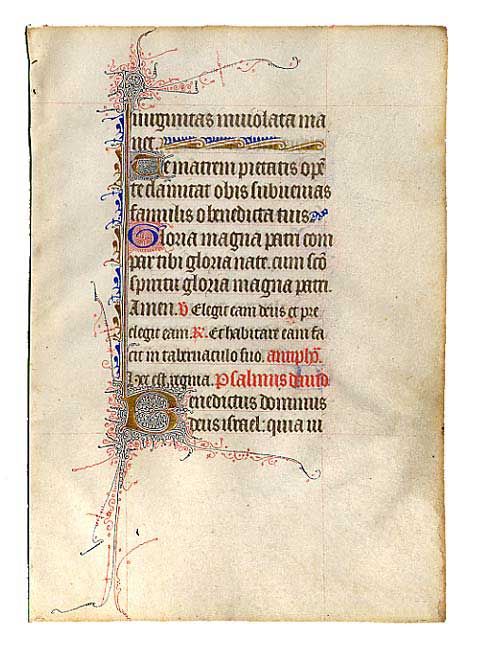 virginitas inuiolata ma
net.
Te matrem pietatis opẽ
te clamitat orbis subuenias
famulis o benedicta tuis
Gloria magna patri com
par tibi gloria nate. cum scõ
spiritu gloria magna patri.
Amen. V Elegit eam deus et pre
elegit eam. R. Et habitare eam fa
cit in tabernaculo suo. antiphõ.
Hec est regina. Psalmus dauid
Benedictus dominus
deus israel: quia ui